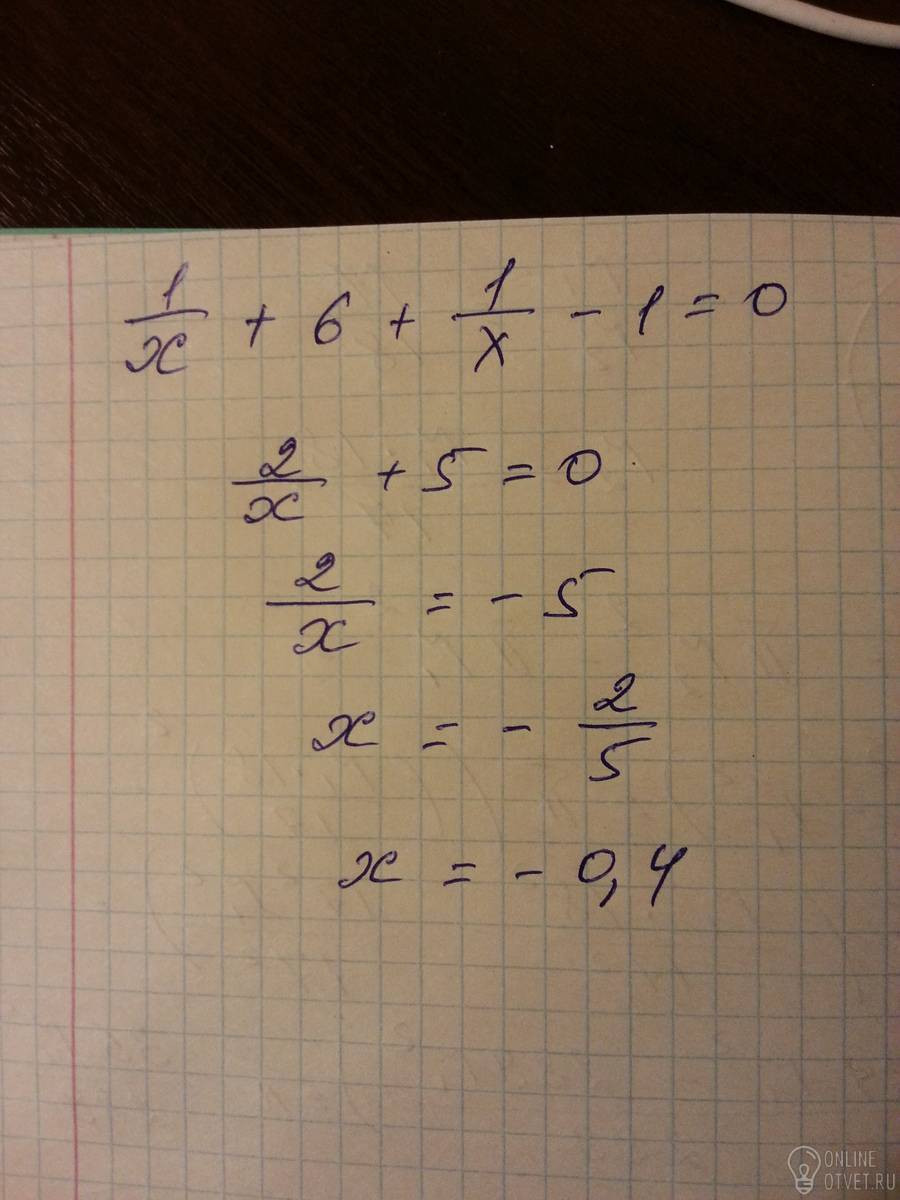 1/x + 6 + 1/x - 1 = 0
2/x + 5 = 0
2/x = - 5
x = - 2/5
x = - 0,4
ONLINE
OTVET.RU